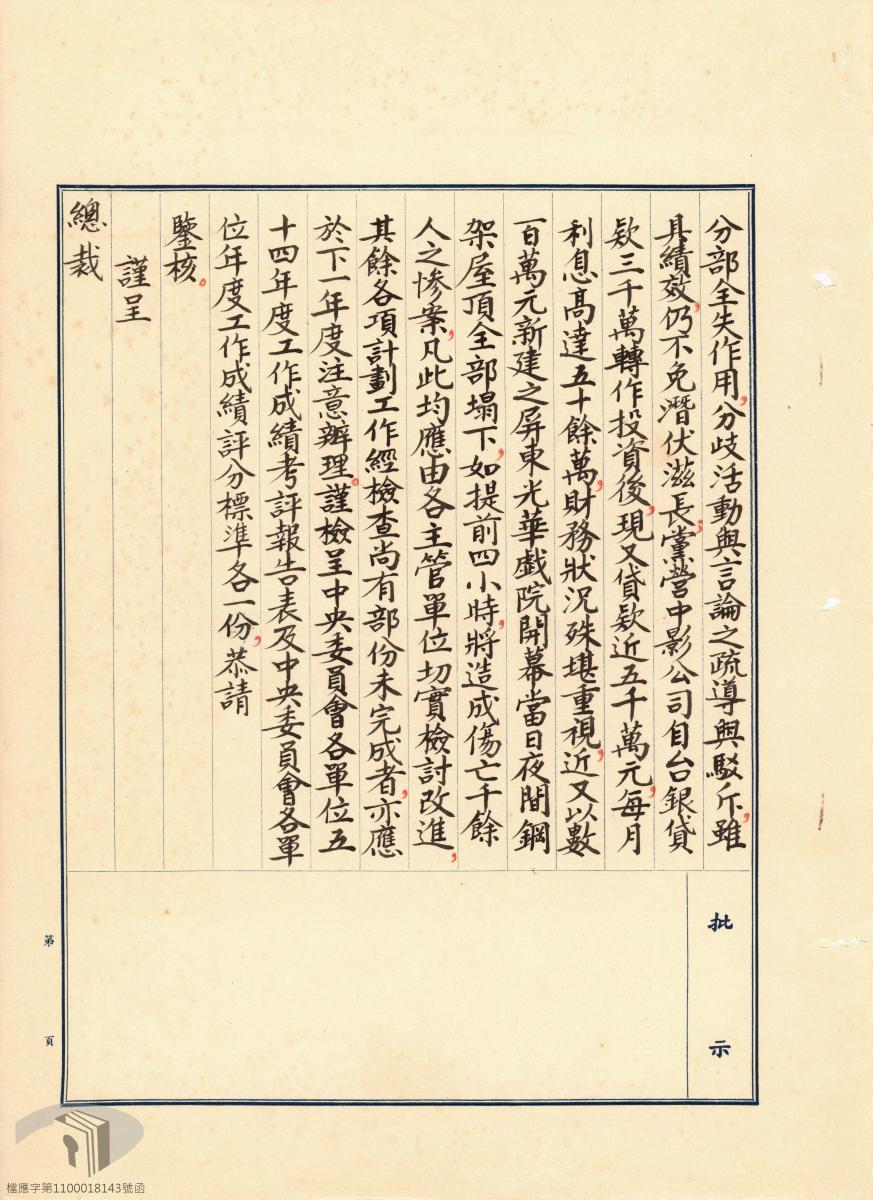 分部全失作用，分歧活動與言論之疏導與駁斥，雖
具績效，仍不免潛伏滋長；黨營中影公司自台銀貸
欵三千萬轉作投資後，現又貸欵近五千萬元，每月
利息高達五十餘萬，財務狀況殊堪重視，近又以數
百萬元新建之屏東光華戲院開幕當日夜間鋼
架屋頂全部塌下，如提前四小時，將造成傷亡千餘
人之慘案，凡此均應由各主管單位切實檢討改進，
其餘各項計劃工作經檢查尚有部份未完成者，亦應
於下一年度注意辦理。謹檢呈中央委員會各單位五
十四年度工作成績考評報告表及中央委員會各單
位年度工作成績評分標準各一份，恭請
鑒核。
謹呈
總裁
批示
第 頁
檔應字第1100018143號函